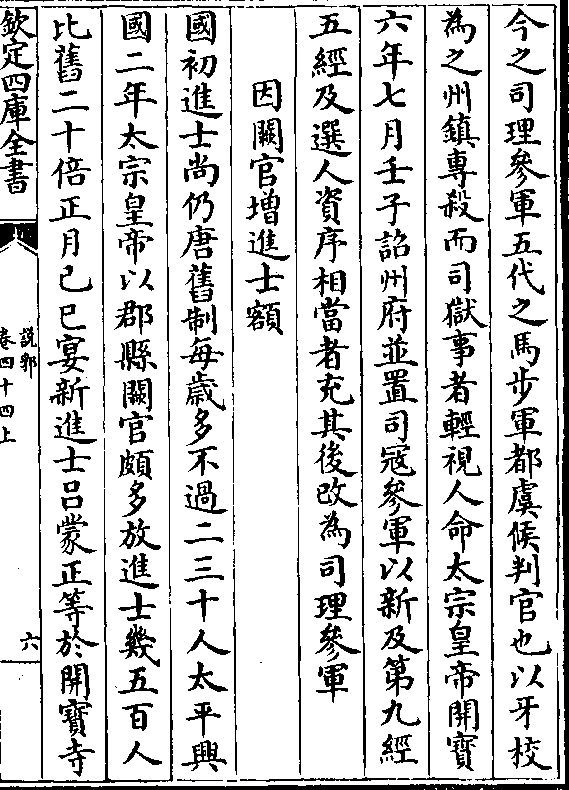 今之司理參軍五代之馬步軍都虞候判官也以牙校
為之州鎮專殺而司獄事者輕視人命太宗皇帝開寶
六年七月壬子詔州府並置司冦參軍以新及第九經
五經及選人資序相當者充其後改為司理參軍
因闕官增進士額
國初進士尚仍唐舊制每歲多不過二三十人太平興
國二年太宗皇帝以郡縣闕官頗多放進士幾五百人
比舊二十倍正月己巳宴新進士呂蒙正等於開寶寺
欽定四庫全書
說郛
卷四十四上
六